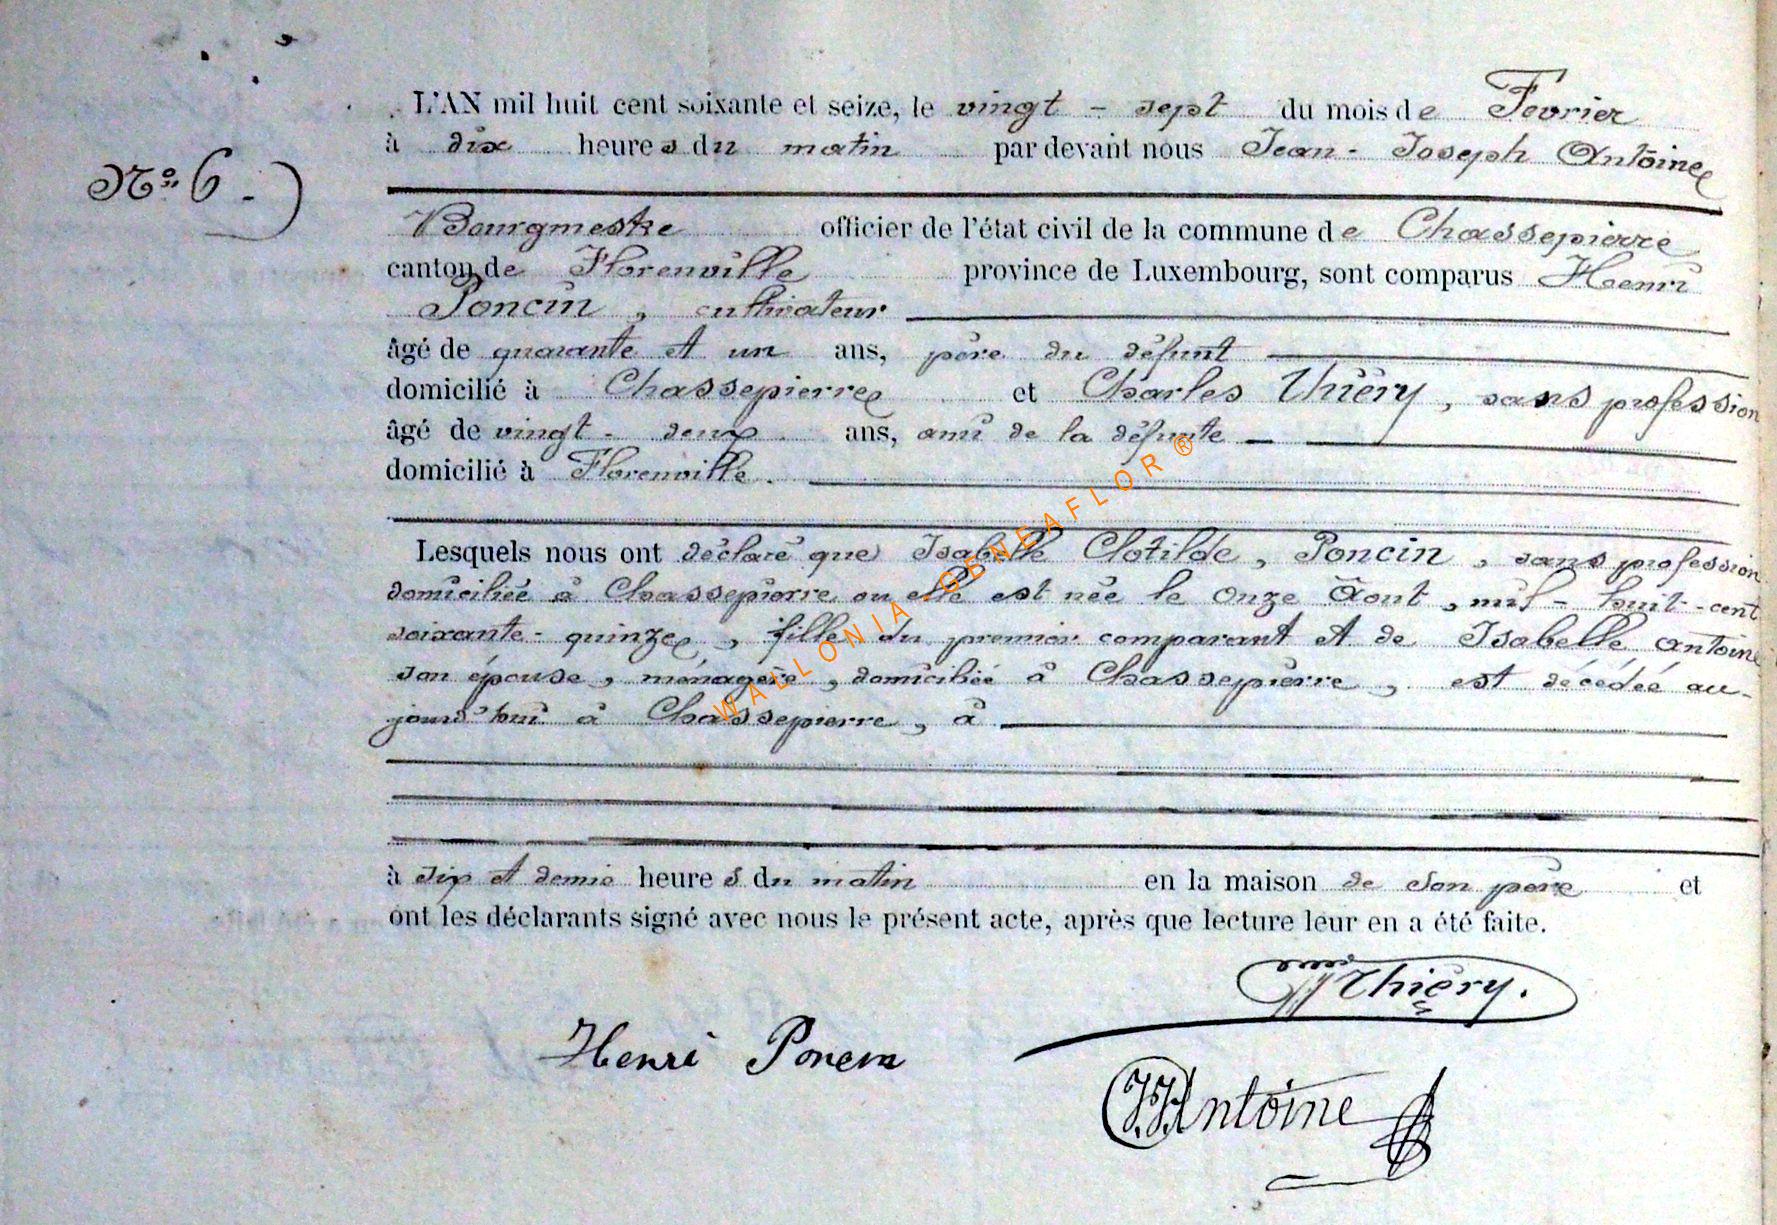 L'AN mil huit cent soixante et seize, le vingt - sept du mois de Fevrier
à dix heures du matin par devant nous Jean - Joseph Antoine
N° 6 -)
Bourgmestre officier de l'état civil de la commune de Chassepierre
canton de Florenville province de Luxembourg, sont comparus Henri
Poncin, cultivateur
âgé de quarante et un ans, père du défunt
domicilié à Chassepierre et Charles Thiéry, sans profession
âgé de vingt - deux ans, ami de la défunte
domicilié à Florenville.
Lesquels nous ont déclaré que Isabelle Clotilde, Poncin, sans profession
domiciliée à Chassepierre ou elle est née le Onze Aout, mil - huit - cent
soixante - quinze, fille du premier comparant et de Isabelle Antoine
son épouse, ménagère, domiciliée à Chassepierre, est décédée au-
jourd'hui à Chassepierre, à
à six et demie heures du matin en la maison de son père et
ont les déclarants signé avec nous le présent acte, après que lecture leur en a été faite.
Thiéry.
Henri Poncin
JJAntoine
WALLONIA GENEAFLOR ®